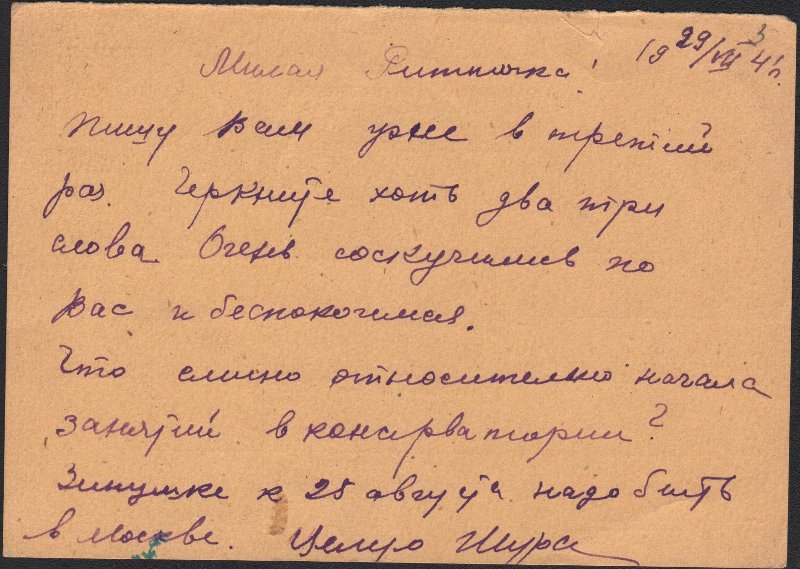 Милая Риточка! 19 29/VII 41г.
Пишу Вам уже в третий
раз. Черкните хоть два три
слова Очень соскучились по
Вас и беспокоимся.
Что слышно относительно начала
занятий в консерватории?
Зинушке к 25 августа надо быть
в Москве. Целую Шура